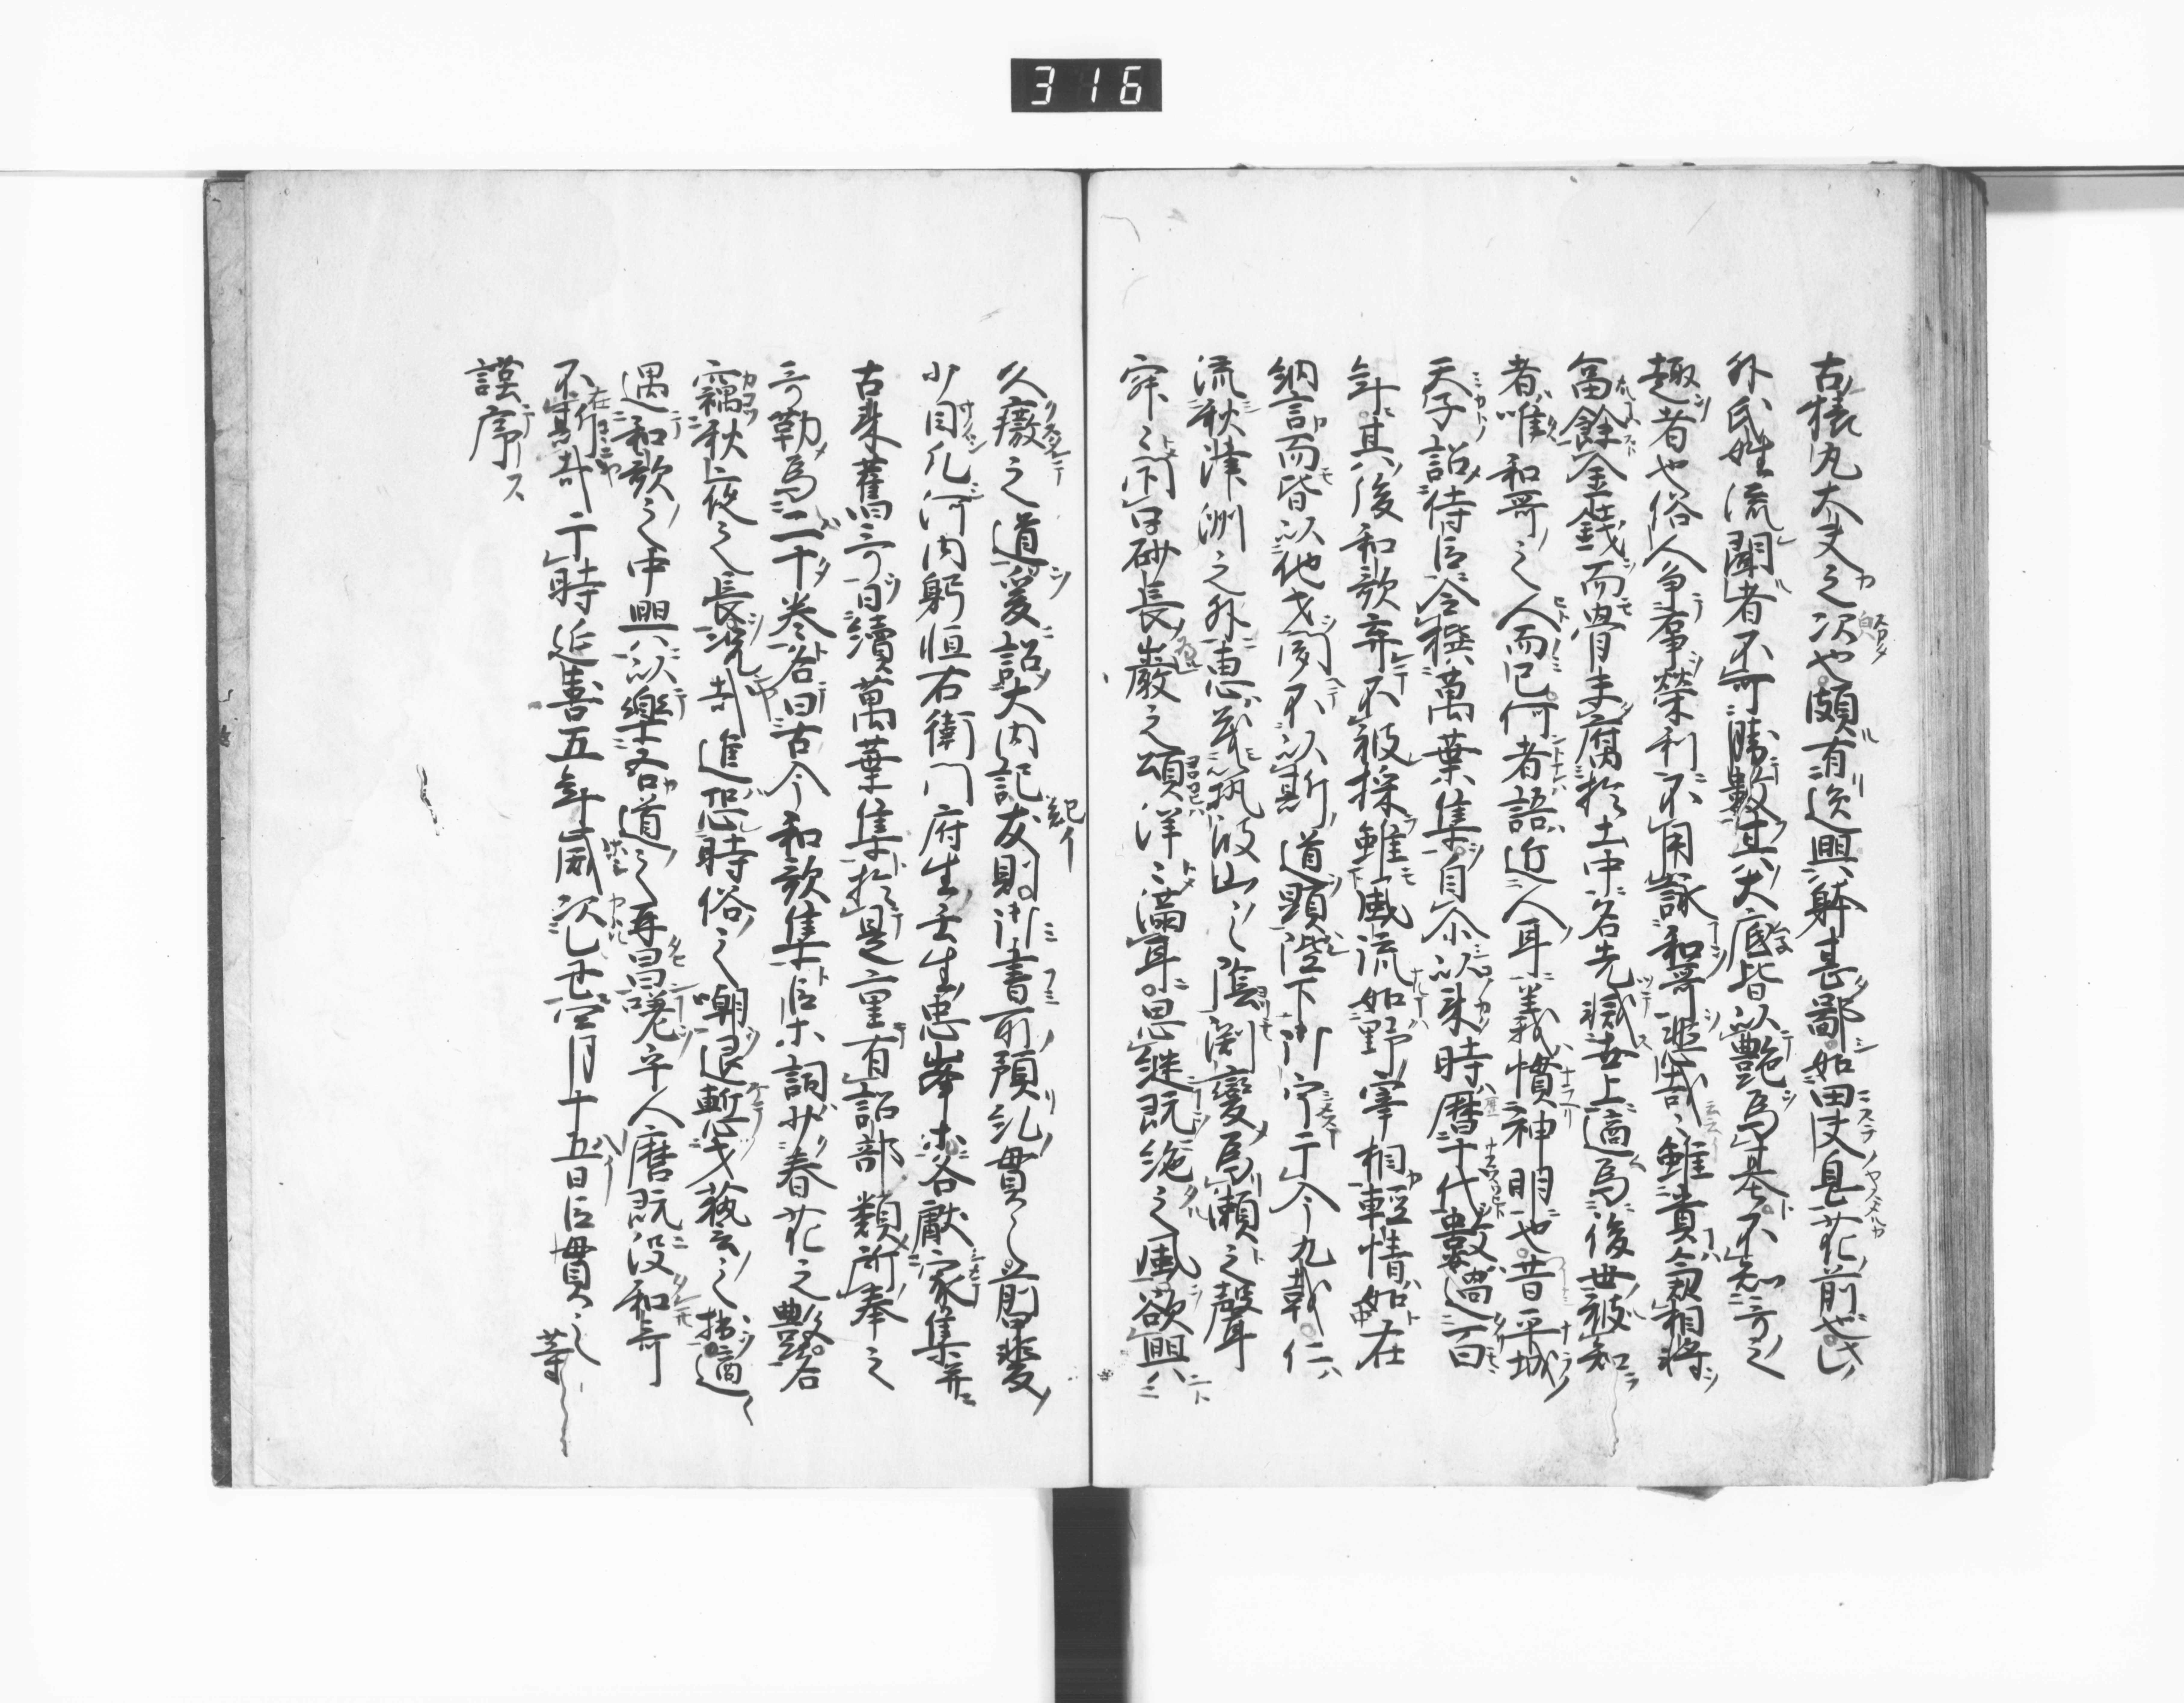 316
古猿丸大夫之次也頗有逸興躰甚鄙如田夫息花前也此
外氏姓流聞者不可勝數其大底皆以艶為基不知哥之
趣者也俗人争事榮利不用詠和哥悲哉〻雖貴兼相将
富餘金錢而骨未腐於土中名先滅世上適為後世被知
者唯和哥之人而已何者語近人耳義慣神明也昔平城
天子詔侍臣令撰萬葉集自尒以来時暦十代數過百
年其後和歌弃不被採雖風流如野宰相軽情如在
納言而皆以他才聞不以斯道顕陛下御宇于今九載仁
流秋津洲之外恵茂筑波山之陰渕變為瀬之聲
寂〻閇口砂長巌之頌洋〻満耳思継既絶之風欲興
久癈之道爰詔大内記友則御書所預紀貫之前甲斐
紀イ
少目凡河内躬恒右衛門府生壬生忠岑等各獻家集并
古来舊哥曰續萬葉集於是重有詔部類所奉之
哥勒為二十巻名曰古今和歌集臣等詞少春花之艶名
竊秋夜之長況哉進恐時俗之嘲退慙才藝之拙適
遇和歌之中興以樂吾道之再昌嗟乎人麿既没和哥
不在斯哉于時延喜五年歳次乙丑四月十五日臣貫之等
謹序ス